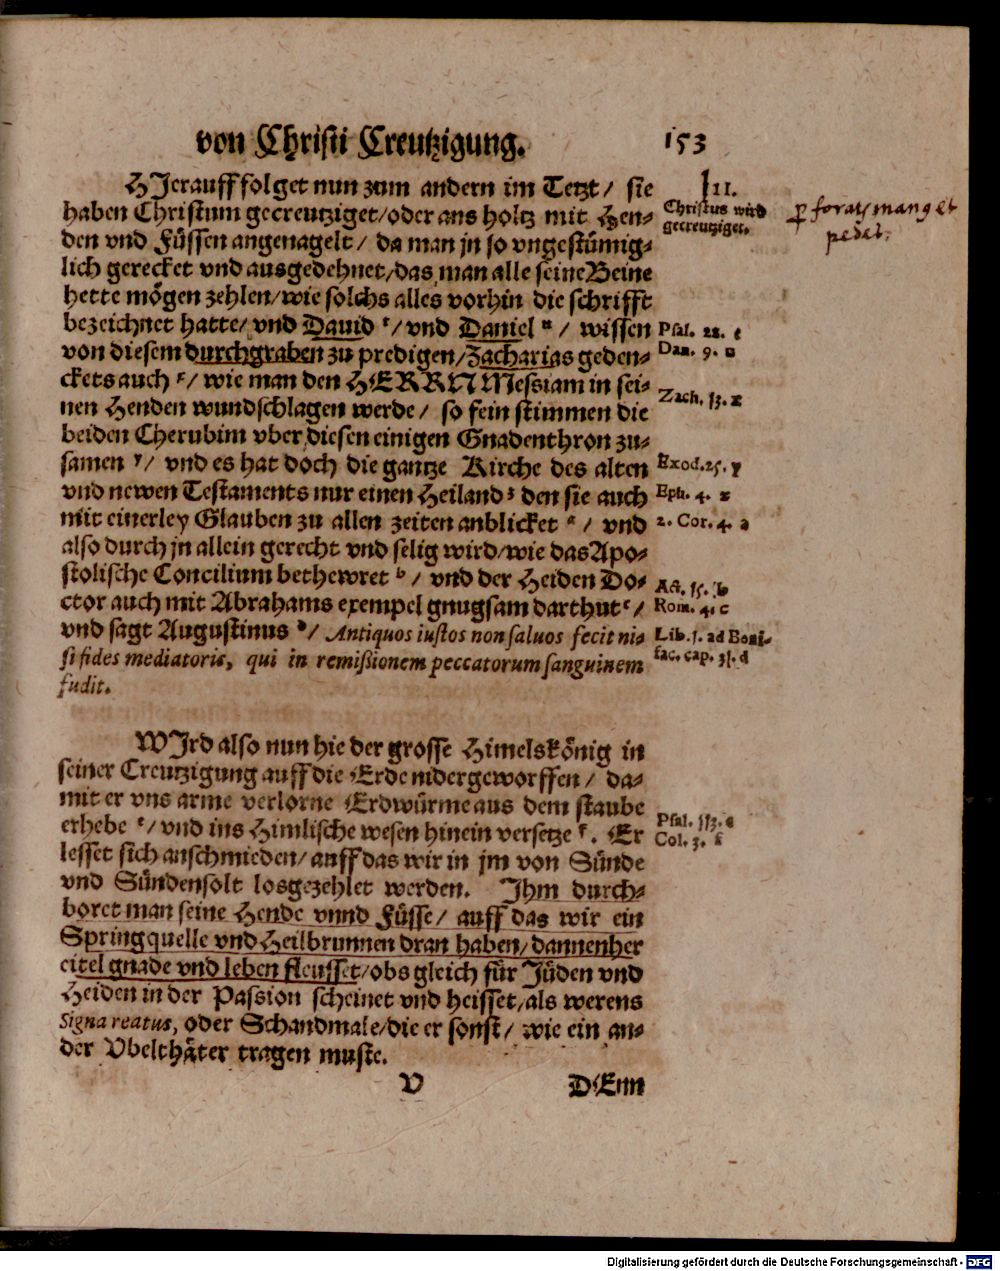 von Christi Creutzigung. 153
HJerauff folget nun zum andern im Tetzt/ sie
haben Christum gecreutziget/oder ans holtz mit Hen-
den vnd Füssen angenagelt/ da man jn so vngestümig-
lich gerecket vnd ausgedehnet/das man alle seine Beine
hette mögen zehlen/wie solchs alles vorhin die schrifft
bezeichnet hatte/ vnd Dauid t/ vnd Daniel u/ wissen
von diesem durchgraben zu predigen/Zacharias geden-
ckets auch x/ wie man den HERRN Messiam in sei-
nen Henden wundschlagen werde/ so fein stimmen die
beiden Cherubim vber diesen einigen Gnadenthron zu-
samen y/ vnd es hat doch die gantze Kirche des alten
vnd newen Testaments nur einen Heiland z den sie auch
mit einerley Glauben zu allen zeiten anblicket a/ vnd
also durch jn allein gerecht vnd selig wird/wie das Apo-
stolische Concilium bethewret b/ vnd der Heiden Do-
ctor auch mit Abrahams exempel gnugsam darthut c/
vnd sagt Augustinus d/ Antiquos iustos non saluos fecit ni-
si fides mediatoris, qui in remißionem peccatorum sanguinem
fudit.
II.
Christus wird
gecreutziget.
forat manꝫ et
pedes.
Psal. 22. t
Dan. 9. u
Zach. 13. x
Exod. 25. y
Eph. 4. z
2. Cor. 4. a
Act. 15. b
Rom. 4. c
Lib. 1. ad Boni-
fac. cap. 31. d
WJrd also nun hie der grosse Himelskönig in
seiner Creutzigung auff die Erde nidergeworffen/ da-
mit er vns arme verlorne Erdwürme aus dem staube
erhebe e/ vnd ins Himlische wesen hinein versetze f. Er
lesset sich anschmieden/ auff das wir in jm von Sünde
vnd Sündensolt losgezehlet werden. Jhm durch-
boret man seine Hende vnnd Füsse/ auff das wir ein
Springquelle vnd Heilbrunnen dran haben/dannenher
eitel gnade vnd leben fleusset/obs gleich für Jüden vnd
Heiden in der Passion scheinet vnd heisset/als werens
Signa reatus, oder Schandmale/die er sonst/ wie ein an-
der Vbelthäter tragen muste.
Psal. 113. e
Col. 3. f
V DEnn
Digitalisierung gefördert durch die Deutsche Forschungsgemeinschaft - DFG